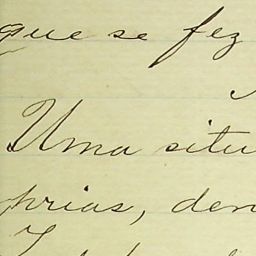 que se fez
Uma situ
prias, den